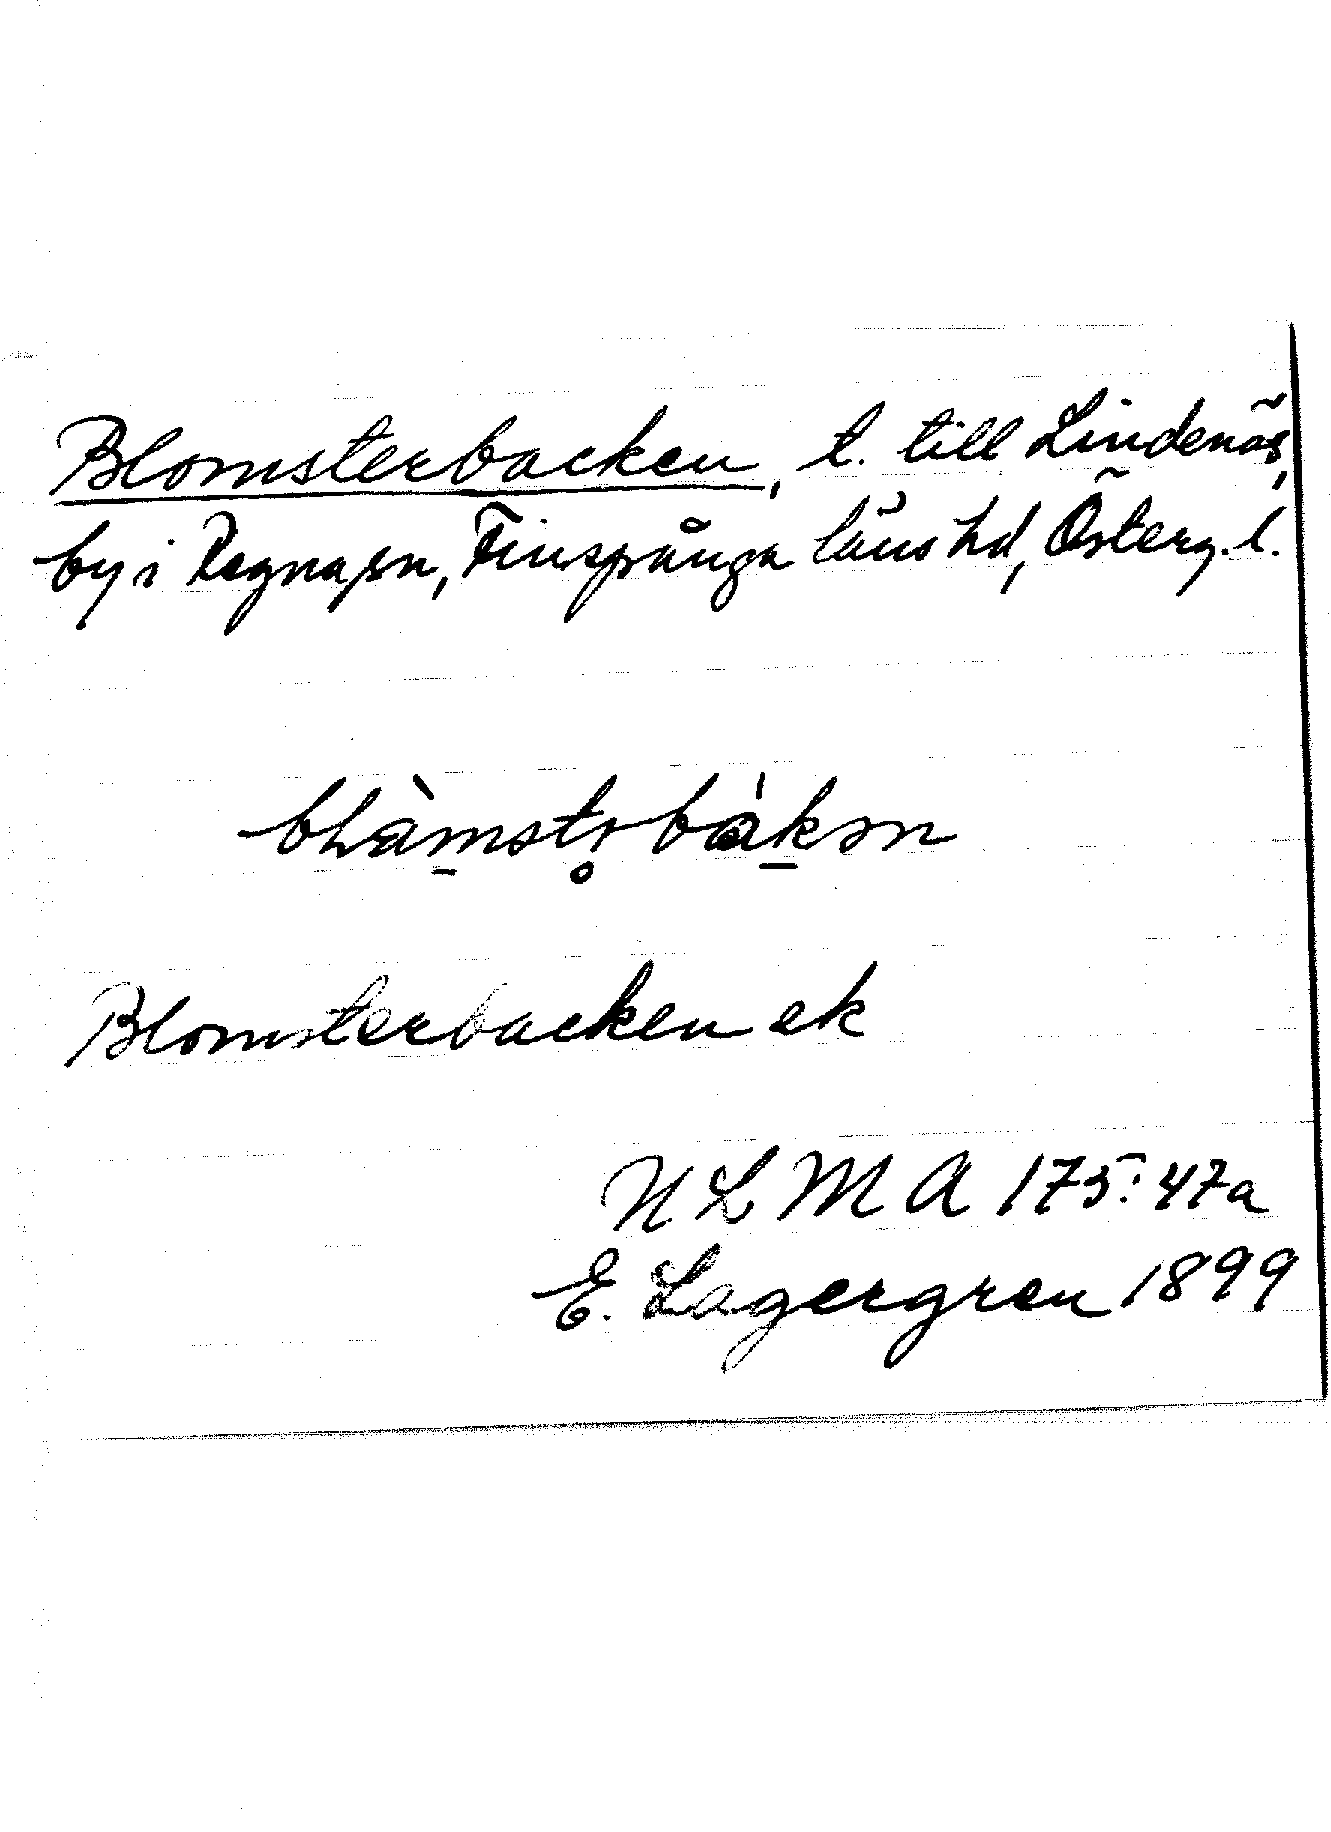 Blomsterbacken, t. till Lindenäs,
by i Regna sn, Finspånga läns hd, Österg. l.
Blomsterbacken ek
ULMA 175:47a
E. Lagergren 1899